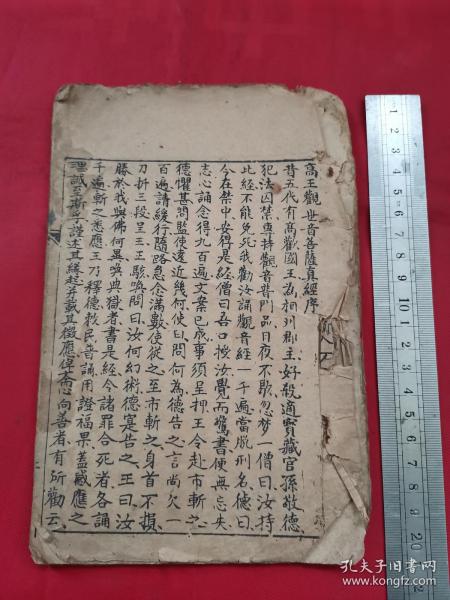 高王觀世音菩薩真經序
昔五代有高歡國王為相州郡主好殺適寶藏官孫敬德
犯法囚禁專持觀音普門品日夜不歇忽梦一僧曰汝持
此經不能免死我勸汝誦觀音經一千遍當脫刑名德曰
今在禁中安得是經僧曰吾口授汝覺而驚書便無忘失
志心誦念得九百遍文案已成事須呈押王令赴市斬之
德懼甚問監使遠近幾何使曰問何為德告之言尚欠一
百遍請緩行隨路急念滿數使從之至市斬之身首不損
刀折三段呈王王駭喚問曰汝何幻術德寔告之王曰汝
勝於我與佛何異喚典獄者書是經令諸罪合死者各誦
千遍斬之悉應王乃釋德敕民普誦用證福果蓋感應之
理誠至斯乎謹述其緣起并載其徵應俾齋心向善者有所勸云
孔夫子旧书网
www.kongfz.com
0 1 2 3 4 5 6 7 8 9 10 1 2 3 4 5 6 7 8 9 20